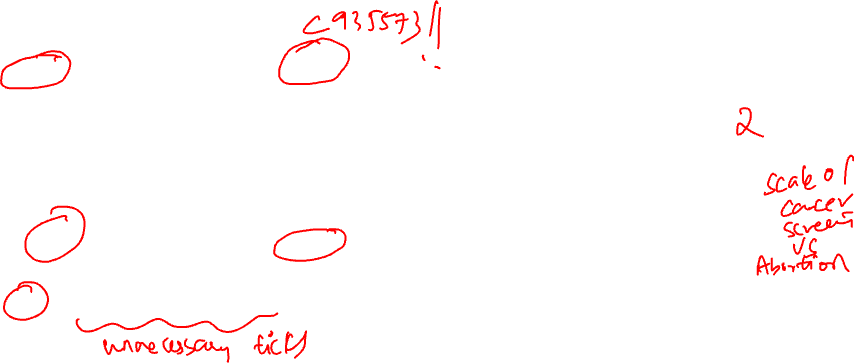 C935573!!
2
scale of
cancer
screeni
vs
Abortion
unnecessary ticks